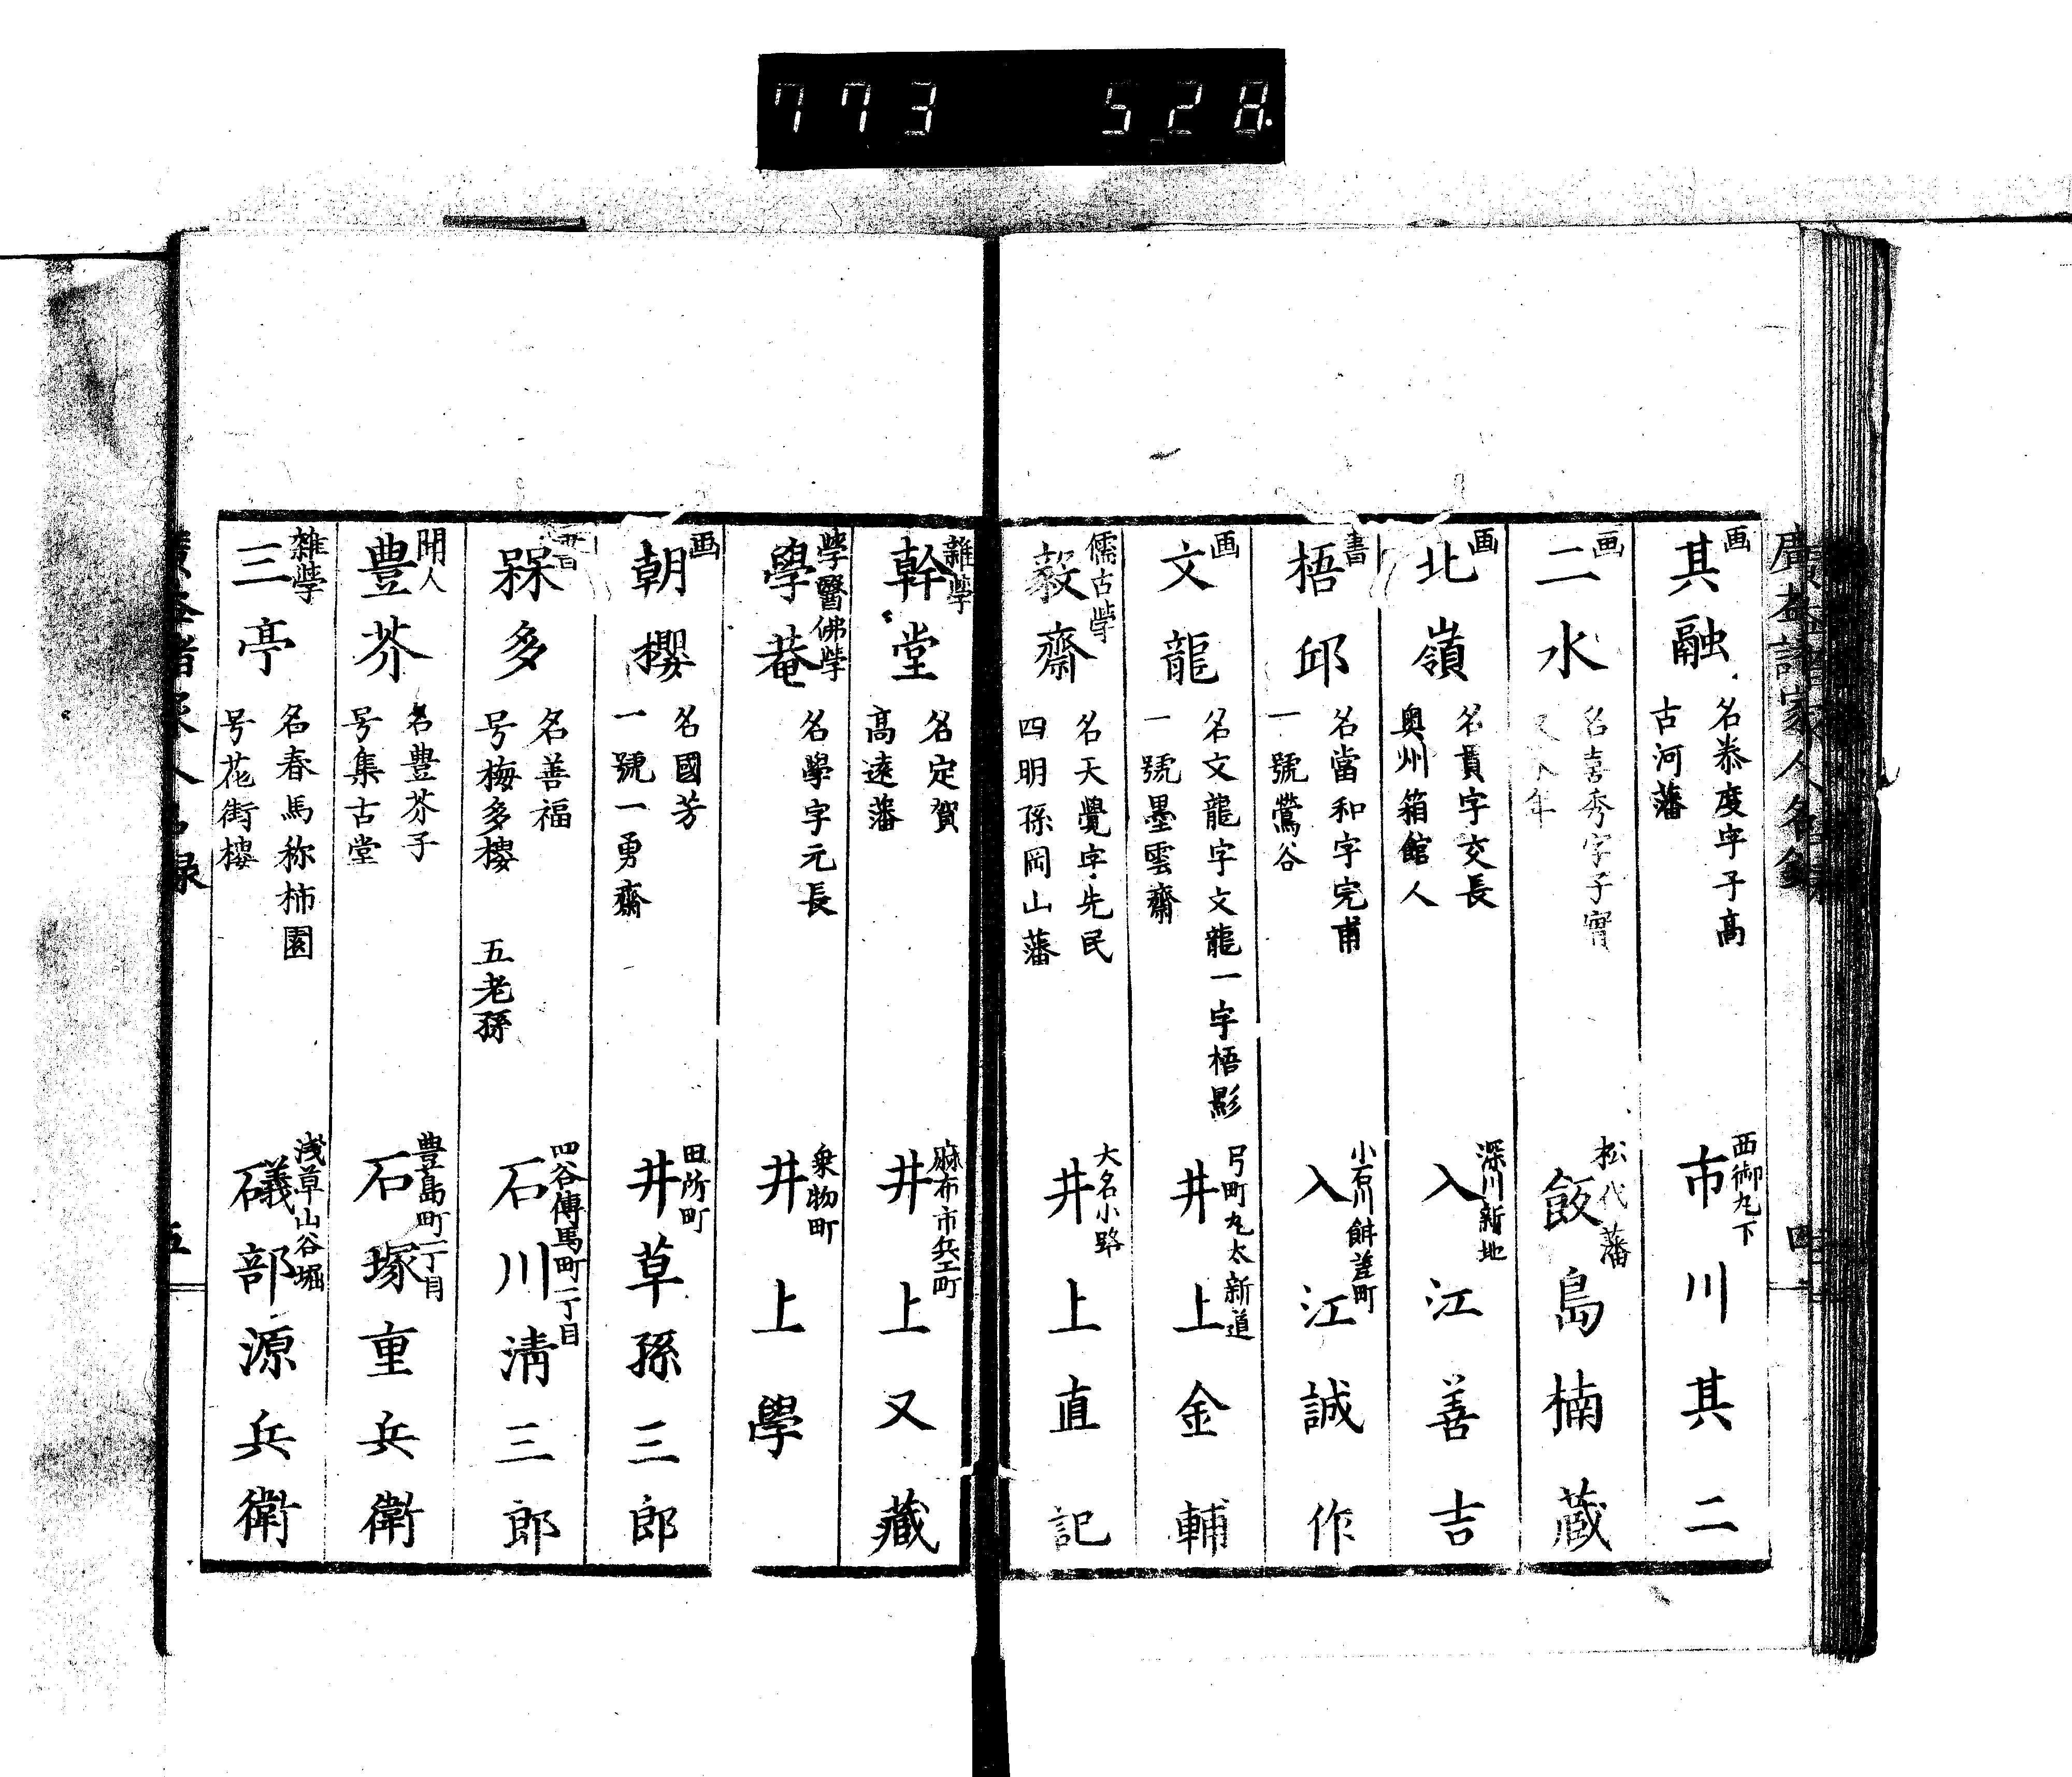 773 528
画
其融
名泰度字子高
古河藩
西御丸下
市川其二
画
二水
名喜秀字子實
松代藩
飯島楠蔵
画
北嶺
名貫字交長
奥州箱館人
深川新地
入江善吉
書
梧邱
名當和字完甫
一號鶯谷
小石川餌差町
入江誠作
画
文龍
名文龍字文龍一字梧影
一號墨雲齋
弓町丸太新道
井上金輔
儒古學
毅齋
名天覺字先民
四明孫岡山藩
大名小路
井上直記
雜學
幹堂
名定賀
高遠藩
麻布市兵工町
井上又藏
學醫佛學
學菴
名學字元長
衆物町
井上學
画
朝櫻
名國芳
一號一勇齋
田所町
井草孫三郎
槑多
名善福
号梅多樓 五老孫
四谷傳馬町一丁目
石川清三郎
聞人
豊芥
名豊芥子
号集古堂
豊島町一丁目
石塚重兵衛
雜學
三亭
名春馬称柿園
号花街樓
浅草山谷堀
礒部源兵衛